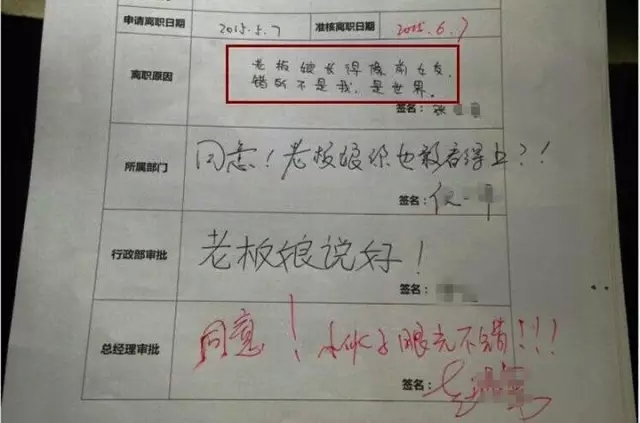 申请离职日期 2015.5.7 准核离职日期 2015.6.7
离职原因
老板娘长得像前女友,
错的不是我,是世界。
签名: 张
所属部门
同意!老板娘你也敢看得上?!
签名:
行政部审批
老板娘说好!
签名:
总经理审批
同意! 小伙子眼光不错!!!
签名: